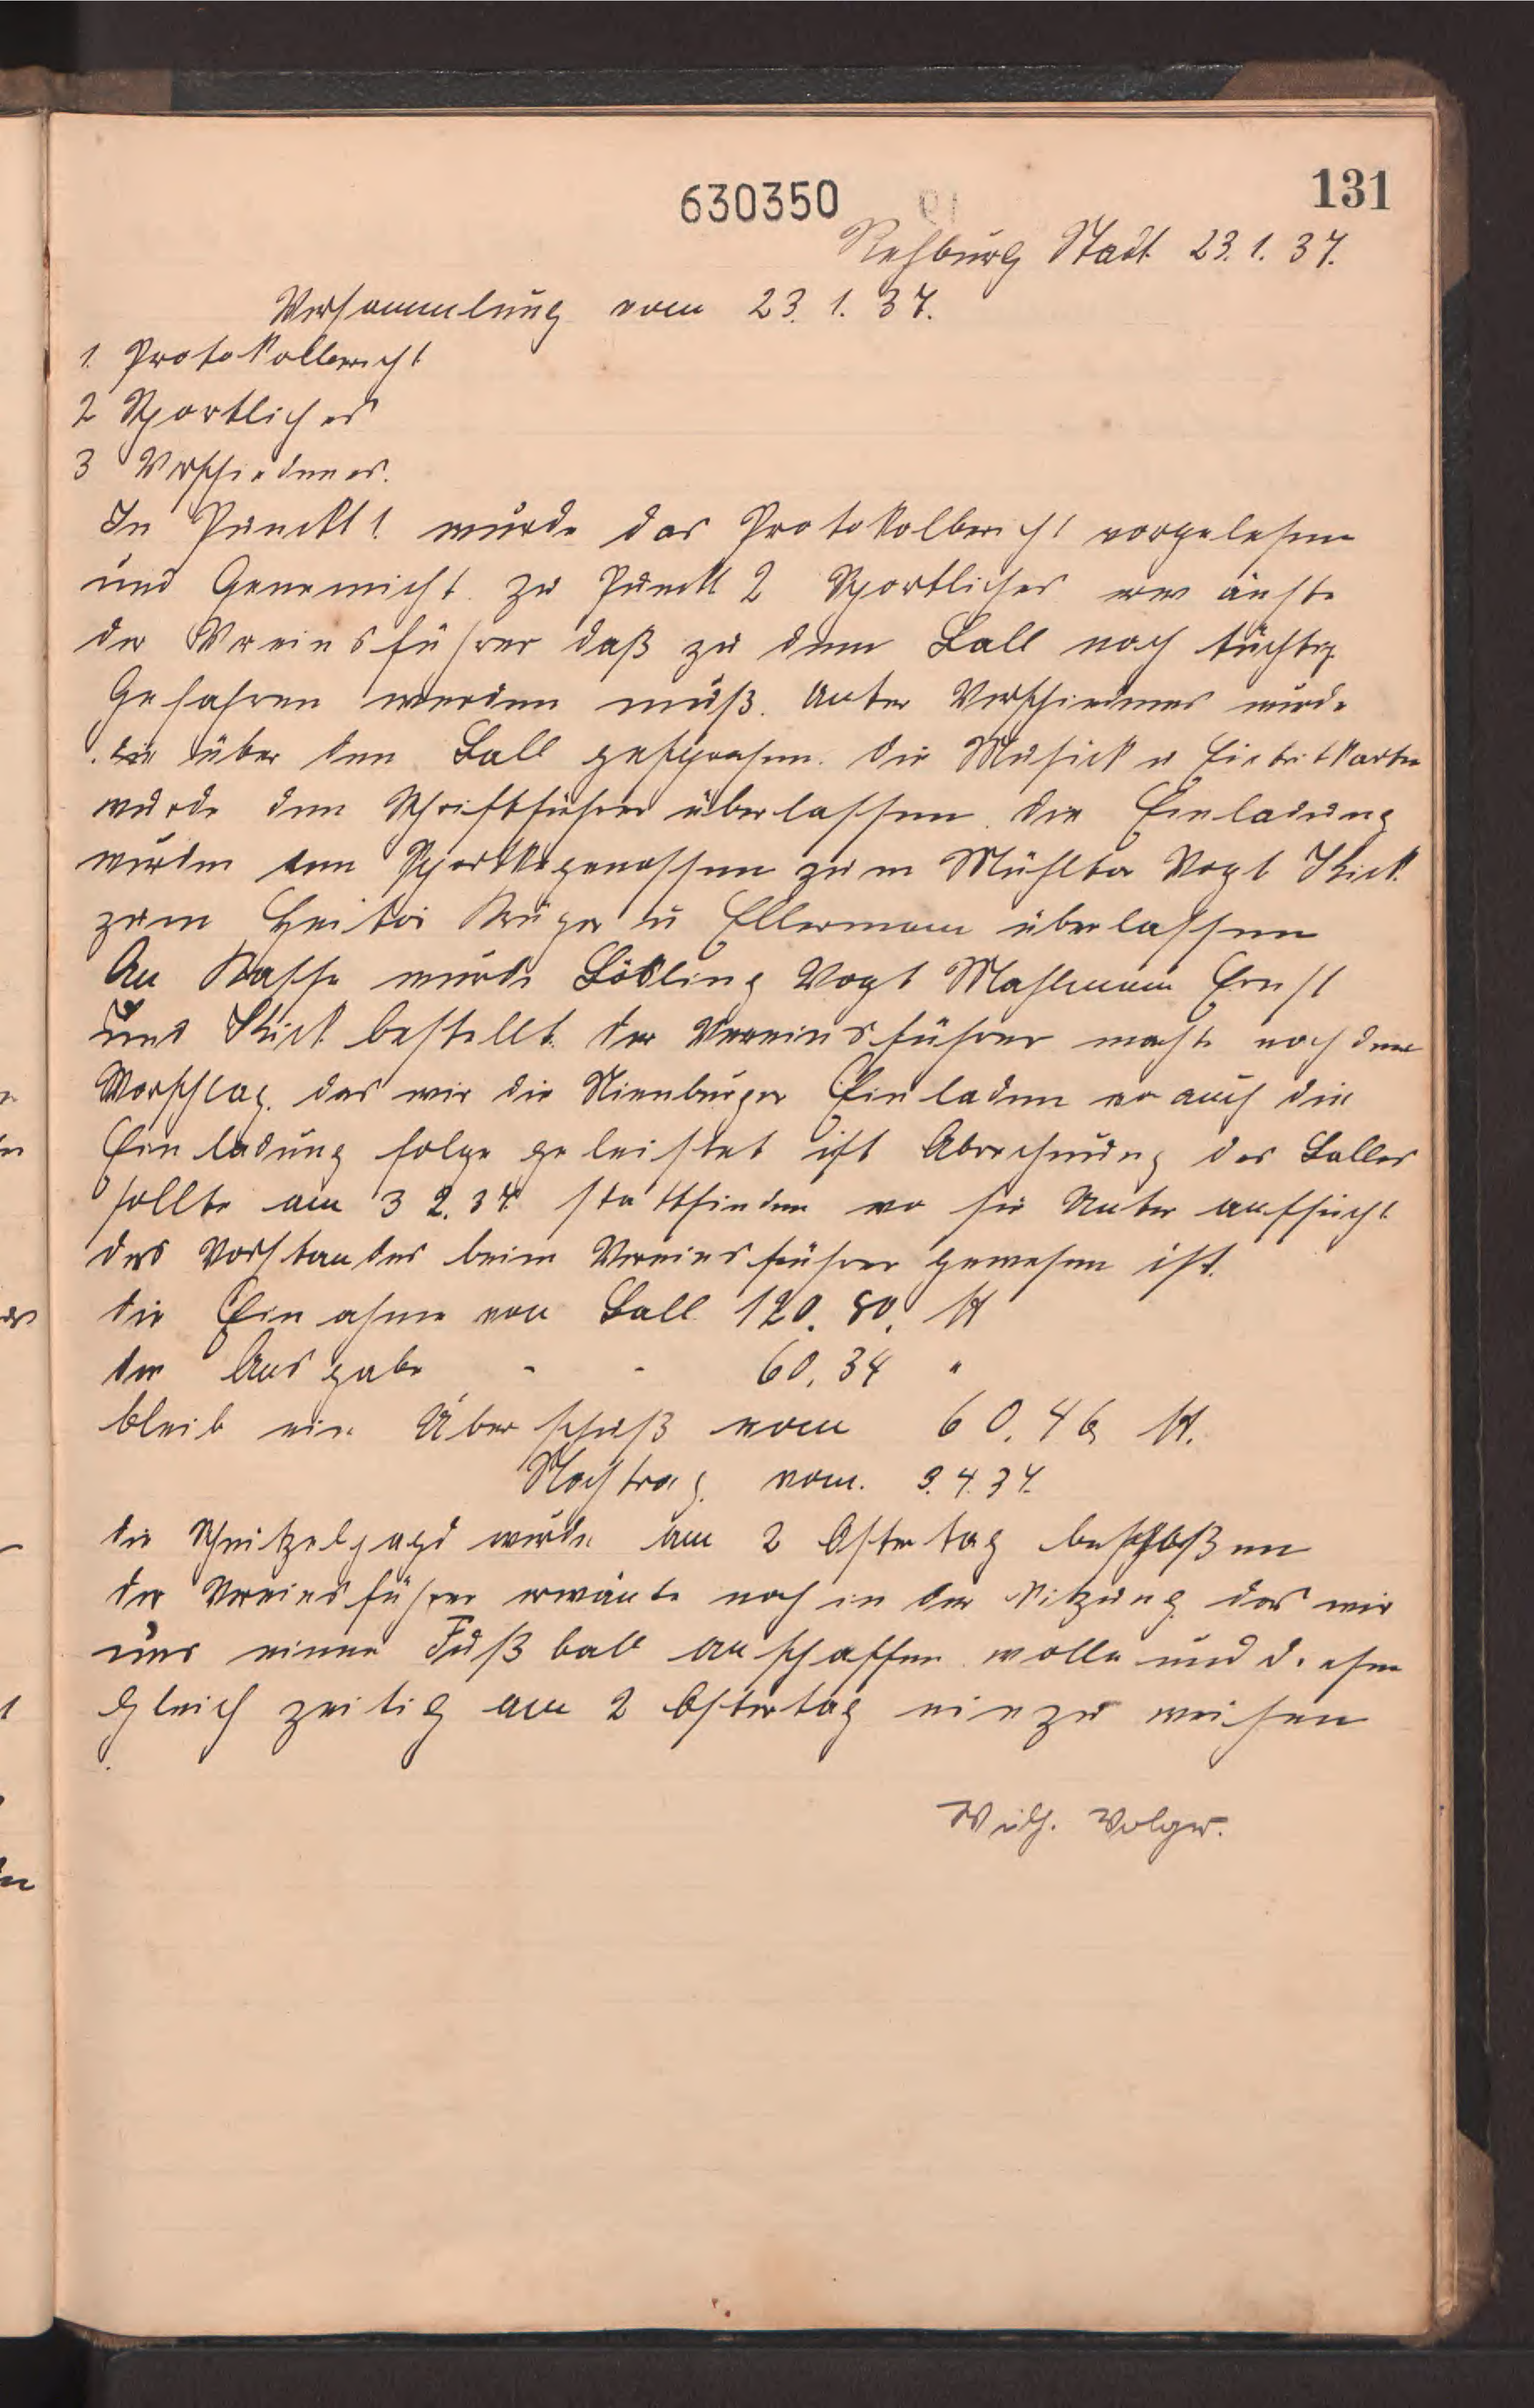 630350
131
Rehburg Stadt 23. 1. 37.
Versammlung vom 23. 1. 37.
1. Protokollbericht
2 Sportliches
3 Verschiedenes.
In Punckt 1. wurde das Protokolbericht vorgelesen
und Genemicht. zu Punckt 2 Sportliches
der Vereinsführer daß zu dem Ball noch tüchtig
Gefahren werden muß. Unter Verschiedenes wurde
über den Ball gesprochen. die Musick u Eintritkarten
wurde dem Schriftführer überlassen. die Einladung
wurden den Sportkgenossen zum Mühltor Vogt
zum Heitor Krüger u Ellermann überlassen
An Kasse wurde Vogt Mahlmann Ernst
und bestellt. der Vereinsführer machte noch den
Vorschlag. das wir die Nienburger Einladen wo auch die
Einladung folge geleistet ist Abrechnung des Balles
sollte am 3 2. 37 stattfinden wo sie Unter aufsicht
des Vorstandes beim Vereinsführer gewesen ist.
die Einahme von Ball 120. 80. M
der Ausgabe - - 60. 34 "
bleib ein Überschuß vom 60. 46 M.
Nachtrag. vom. 3. 4. 37.
die Schnitzeljagd wurde am 2 Ostertag beschloßen
der Vereinsführer erwänte noch in der Sitzung das wir
uns einen Fußball anschaffen wolle und diesen
Gleich zeitig am 2 Ostertag einzu weihen
Wilh. Volger.